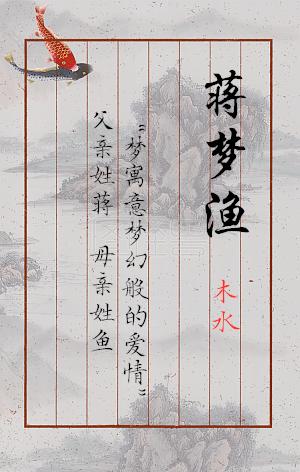 蒋梦渔
木水
"梦寓意梦幻般的爱情"
父亲姓蒋 母亲姓鱼